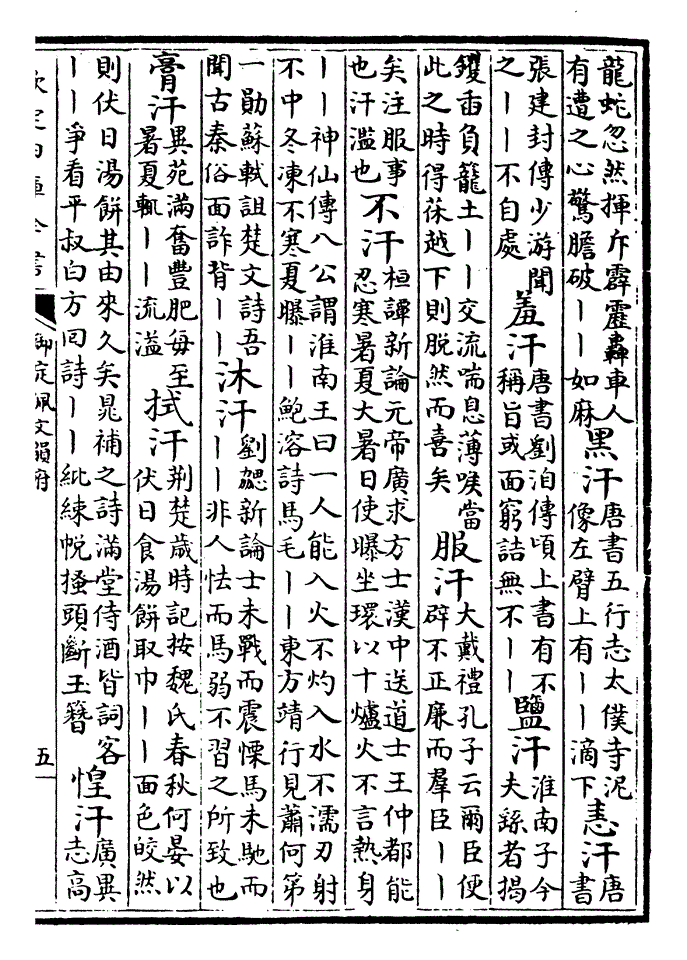 龍蛇忽然揮斥霹靂轟車人
有遭之心驚膽破丨丨如麻
黑汗
唐書五行志太僕寺泥
像左臂上有丨丨滴下
恚汗
唐
書
張建封傳少游聞
之丨丨不自處
羞汗
唐書劉洎傳頃上書有不
稱旨或面窮詰無不丨丨
鹽汗
淮南子今
夫繇者揭
钁臿負籠土丨丨交流喘息薄喉當
此之時得茠越下則脫然而喜矣
服汗
大戴禮孔子云爾臣便
辟不正廉而羣臣丨丨
矣注服事
也汗濫也
不汗
桓譚新論元帝廣求方士漢中送道士王仲都能
忍寒暑夏大暑日使曝坐環以十爐火不言熱身
丨丨神仙傳八公謂淮南王曰一人能入火不灼入水不濡刃射
不中冬凍不寒夏曝丨丨鮑溶詩馬毛丨丨東方靖行見蕭何第
一勛蘇軾詛楚文詩吾
聞古秦俗面詐背丨丨
沐汗
劉勰新論士未戰而震慄馬未馳而
丨丨非人怯而馬弱不習之所致也
膏汗
異苑滿奮豐肥每至
暑夏輒丨丨流溢
拭汗
荆楚歲時記按魏氏春秋何晏以
伏日食湯餅取巾丨丨面色皎然
則伏日湯餅其由來久矣晁補之詩滿堂侍酒皆詞客
丨丨爭看平叔白方回詩丨丨紕練帨搔頭斷玉簪
惶汗
廣異
志高
欽定四庫全書
御定佩文韻府
五